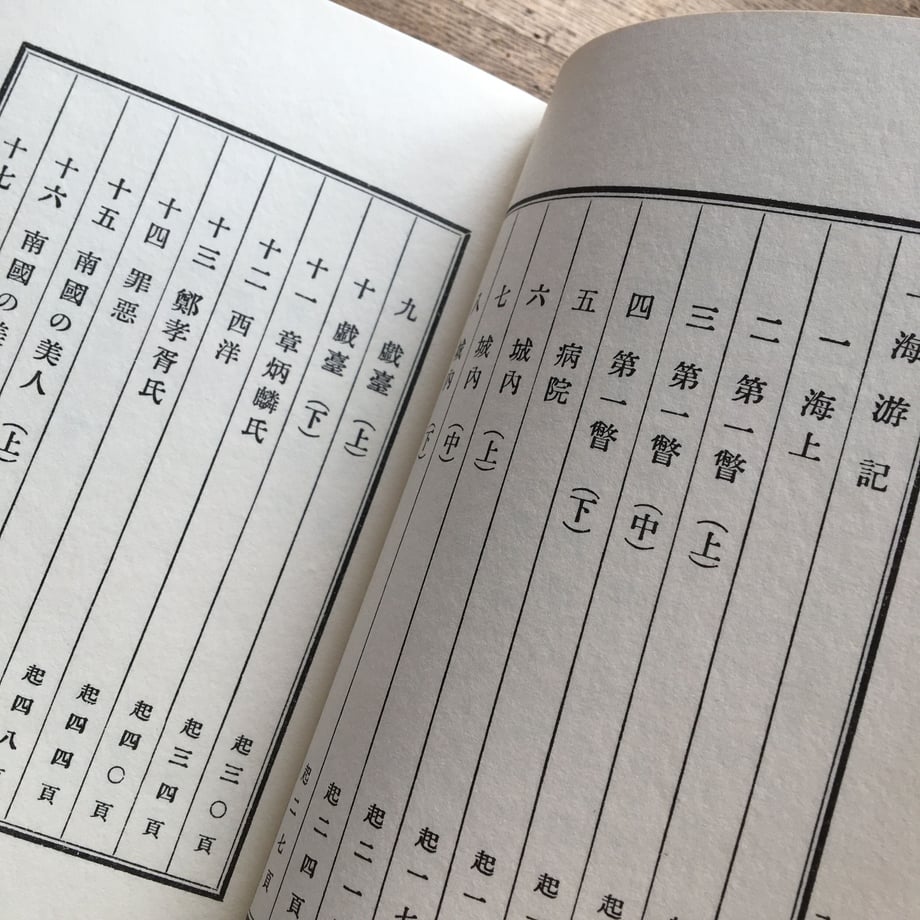 海游記
一 海上
二 第一瞥 (上)
三 第一瞥 (中) 起
四 第一瞥 (下) 起一
五 病院 起一七
六 城內 (上) 起二一
七 城內 (中) 起二四頁
八 城內 (下) 起二七頁
九 戲臺 (上) 起三〇頁
十 戲臺 (下) 起三四頁
十一 章炳麟氏 起四〇頁
十二 西洋 起四四頁
十三 鄭孝胥氏 起四八頁
十四 罪惡
十五 南國の美人 (上)
十六 南國の美
十七